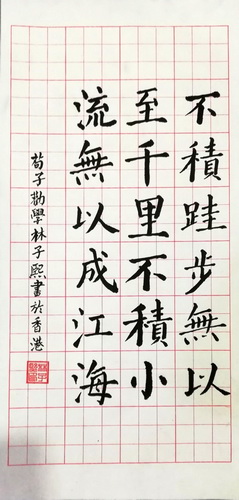 不積跬步無以
至千里不積小
流無以成江海
荀子勸學林子熙書於香港